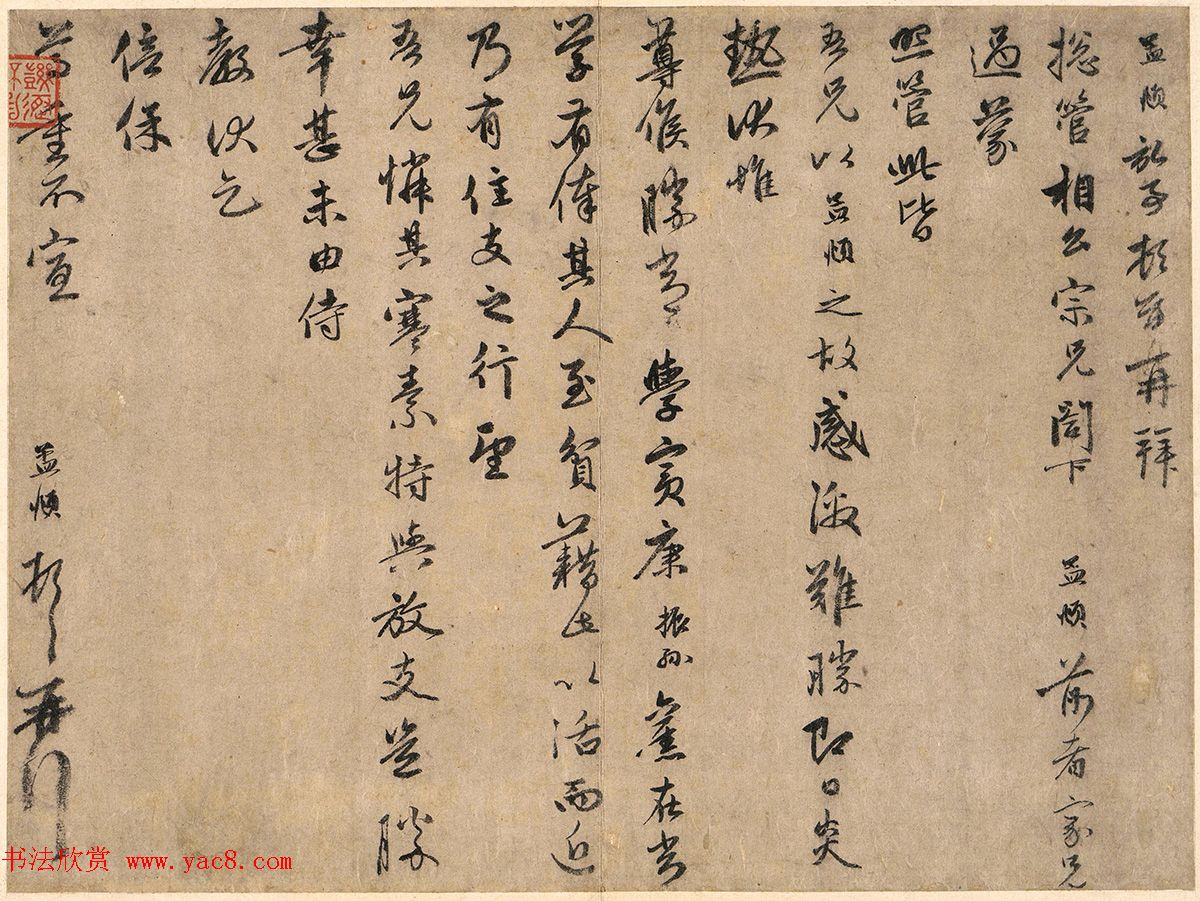 孟頫頓首再拜
總管相公宗兄閣下 孟頫前者家兄
過蒙
照管此皆
吾兄以孟頫之故感激難勝即日炎
熱伏惟
尊候勝常學賓康振孫舊在常
學有俸其人至貧藉此以活而近
乃有住支之行望
吾兄憐其寒素特與放支豈勝
幸甚未由侍
教伏乞
倍保
重不宣 孟頫頓首再拜
书法欣赏 www.yac8.com